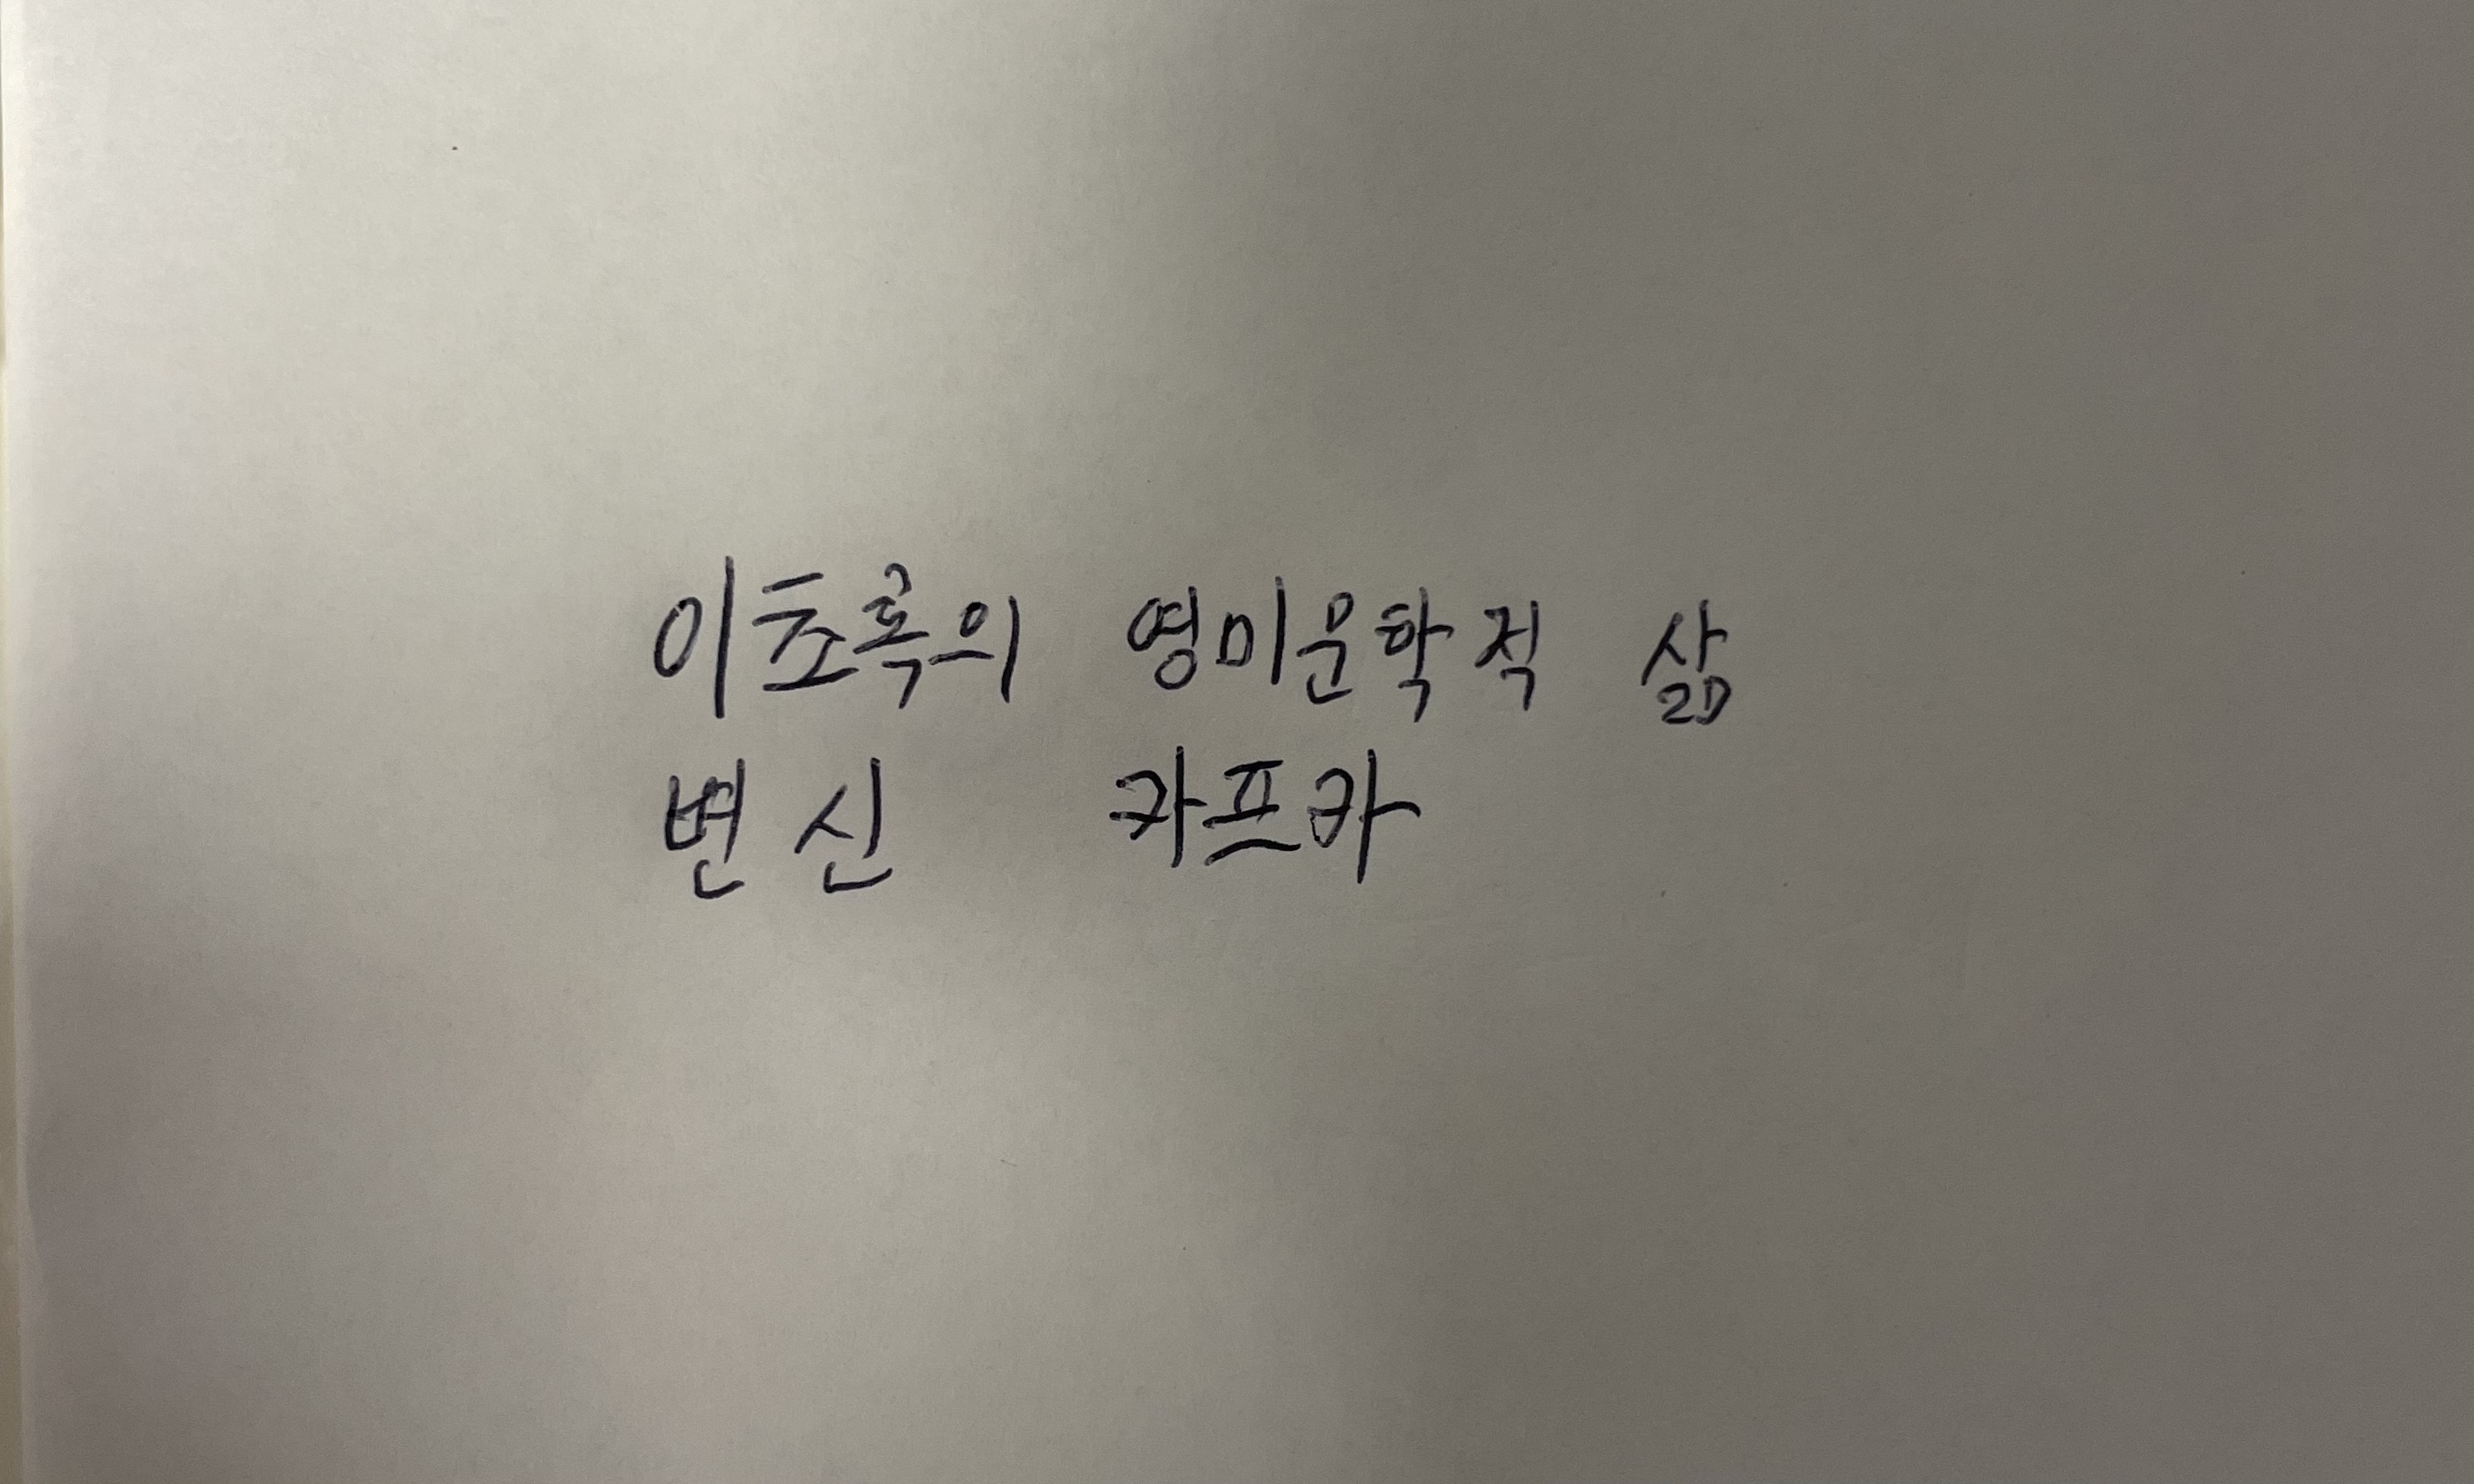 이초록의 영미운학적 삶
변신 카프카